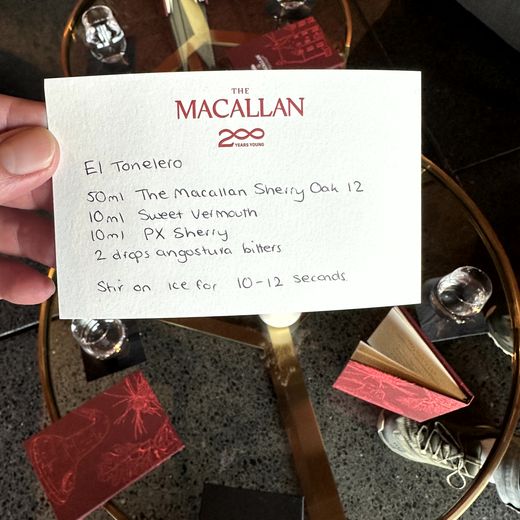 THE
MACALLAN
200
YEARS YOUNG
El Tonelero
50ml The Macallan Sherry Oak 12
10ml Sweet Vermouth
10ml PX Sherry
2 drops angostura bitters
Stir on ice for 10-12 seconds